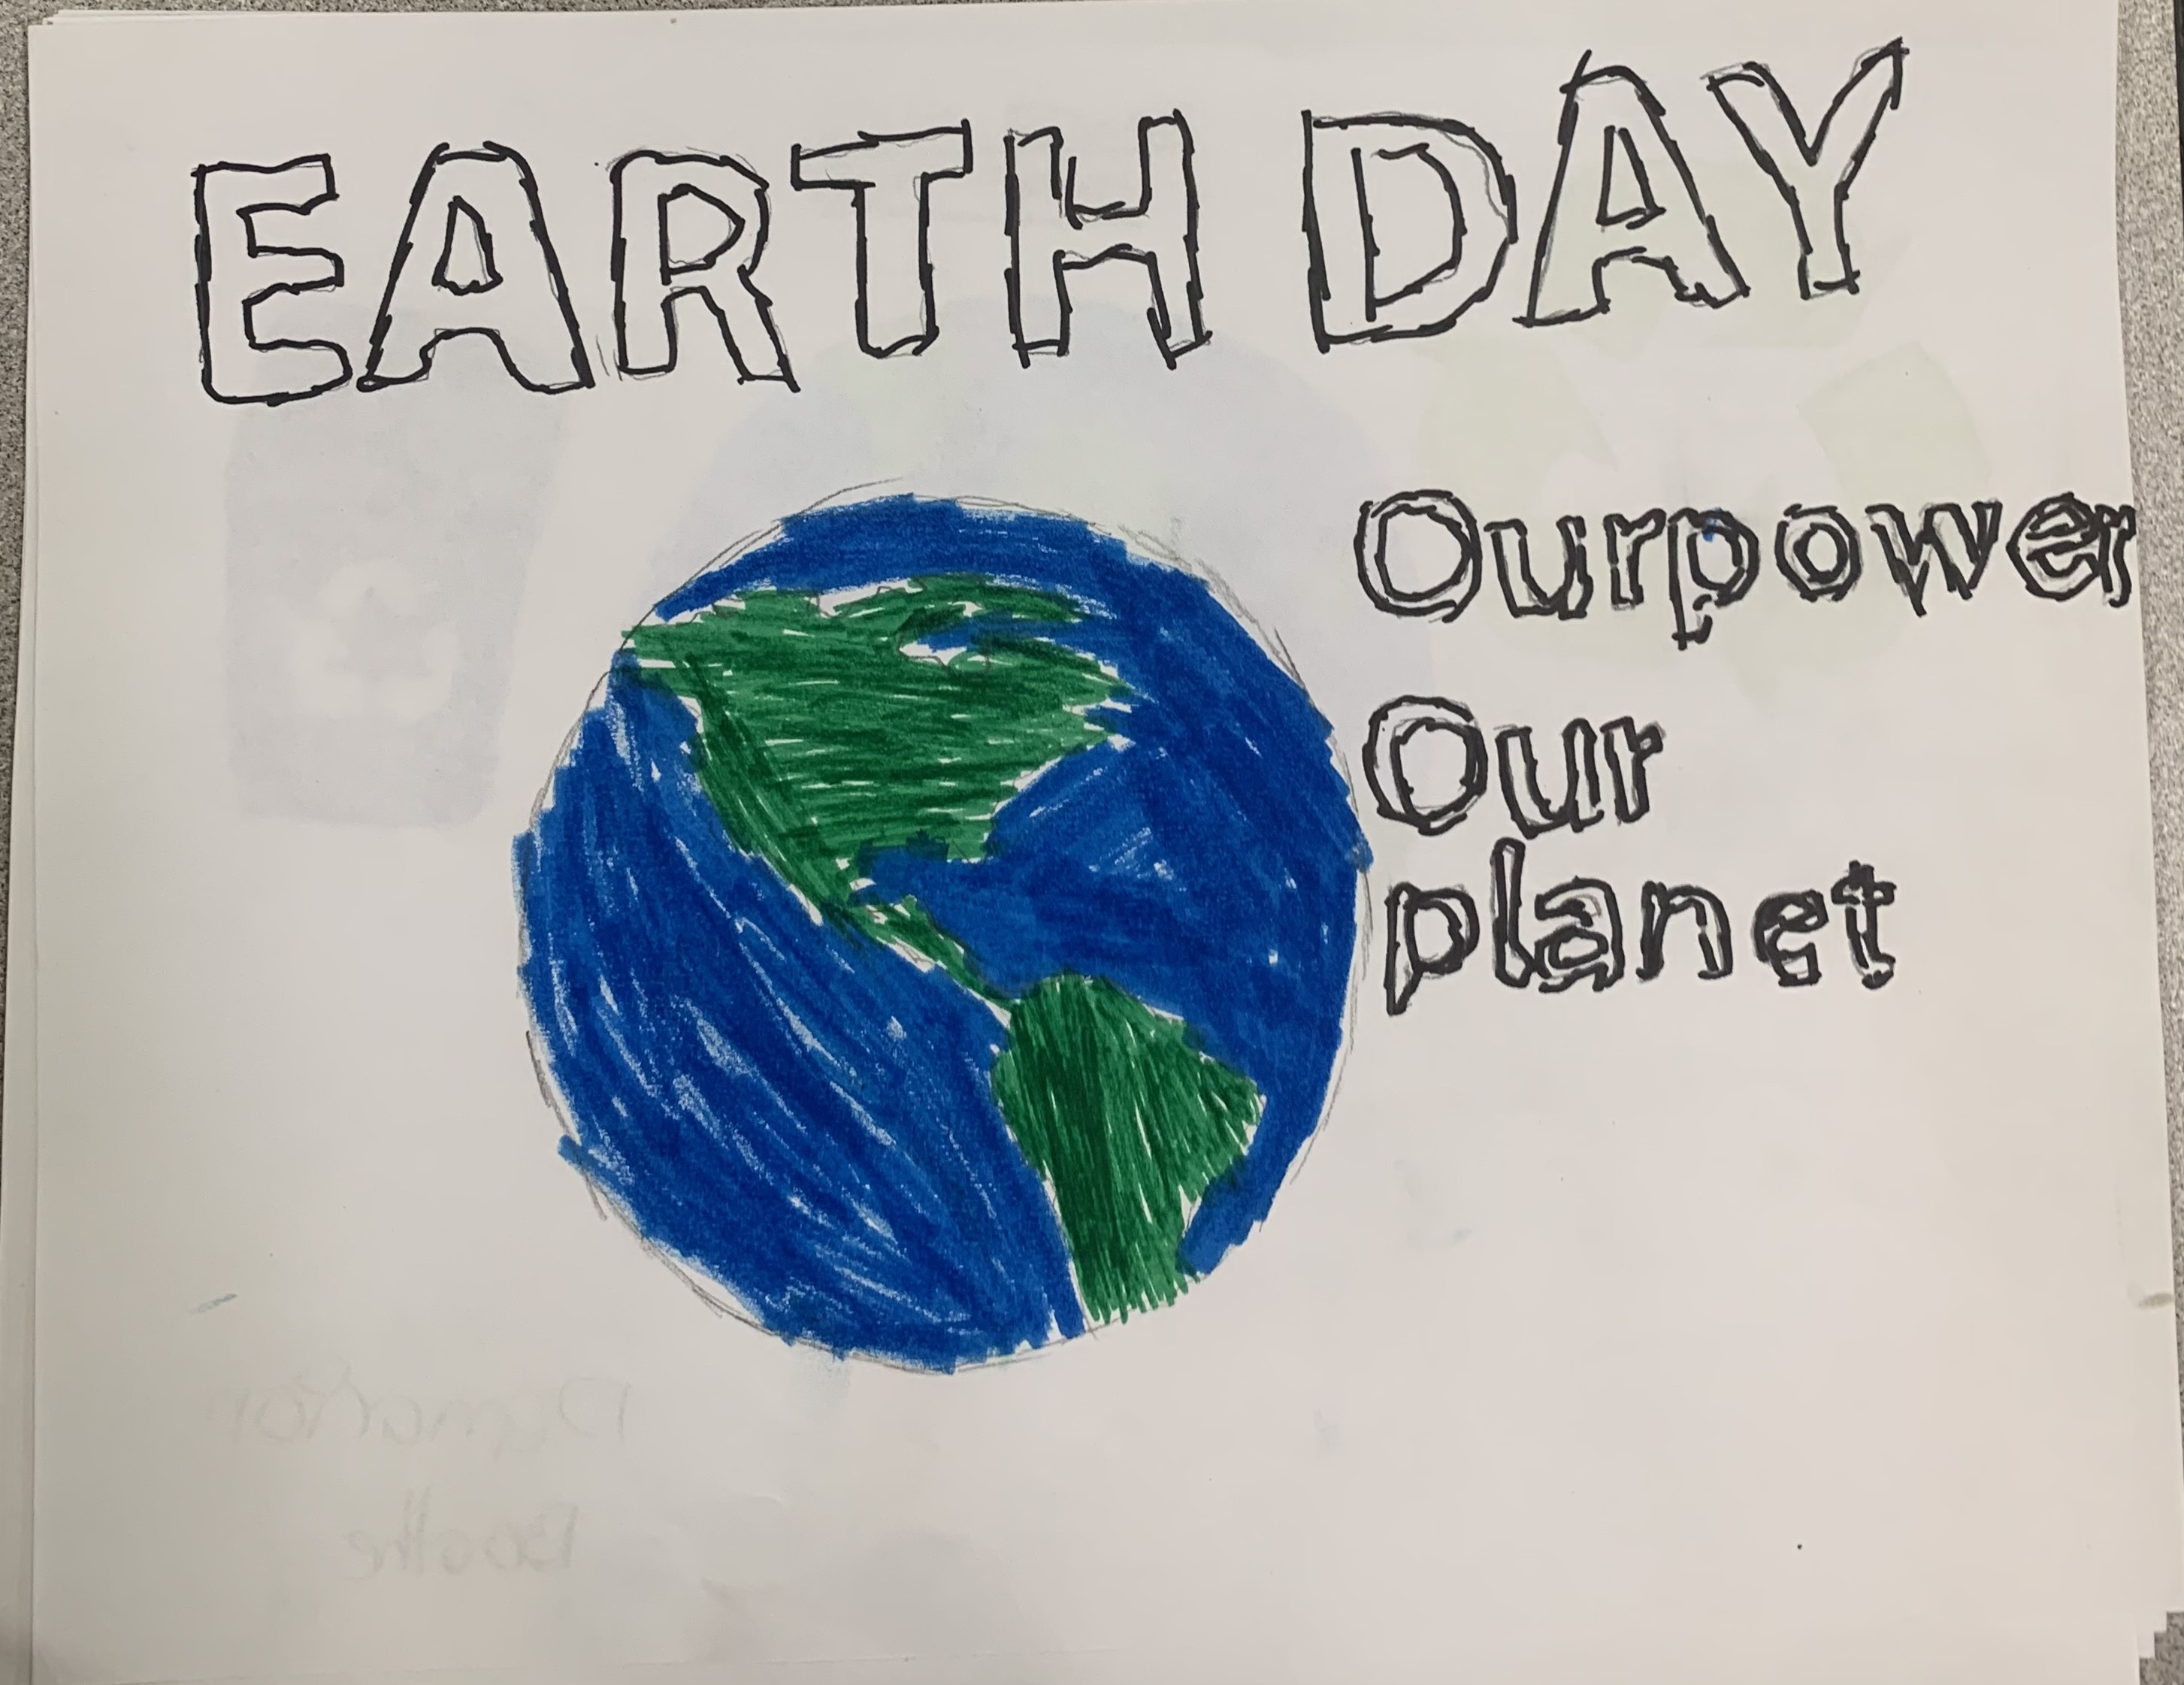 EARTH DAY
Our power
Our
planet